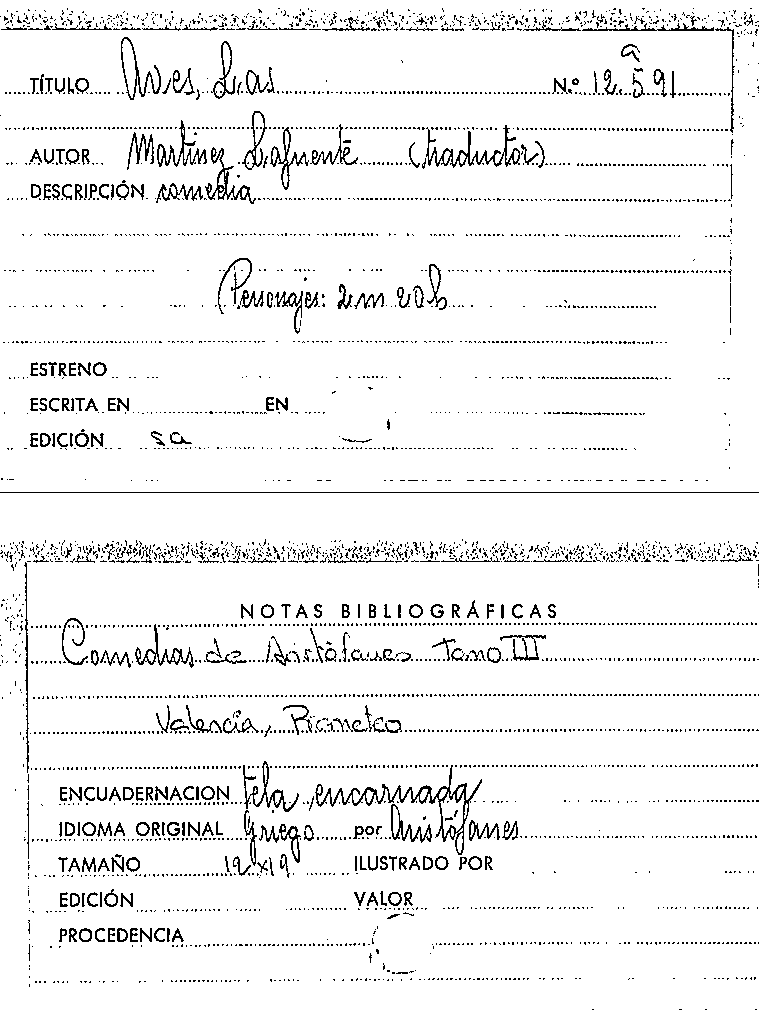 a
TÍTULO Aves, Las N.º 12.591
AUTOR Martinez Lafuente (traductor)
DESCRIPCIÓN comedia
(Personajes: 2 m 20 h
ESTRENO
ESCRITA EN EN
EDICIÓN sa
NOTAS BIBLIOGRÁFICAS
Comedias de Aristófanes Tomo III
Valencia, Prometeo
ENCUADERNACION tela encarnada
IDIOMA ORIGINAL griego por Aristófanes
TAMAÑO 12x19 ILUSTRADO POR
EDICIÓN VALOR
PROCEDENCIA